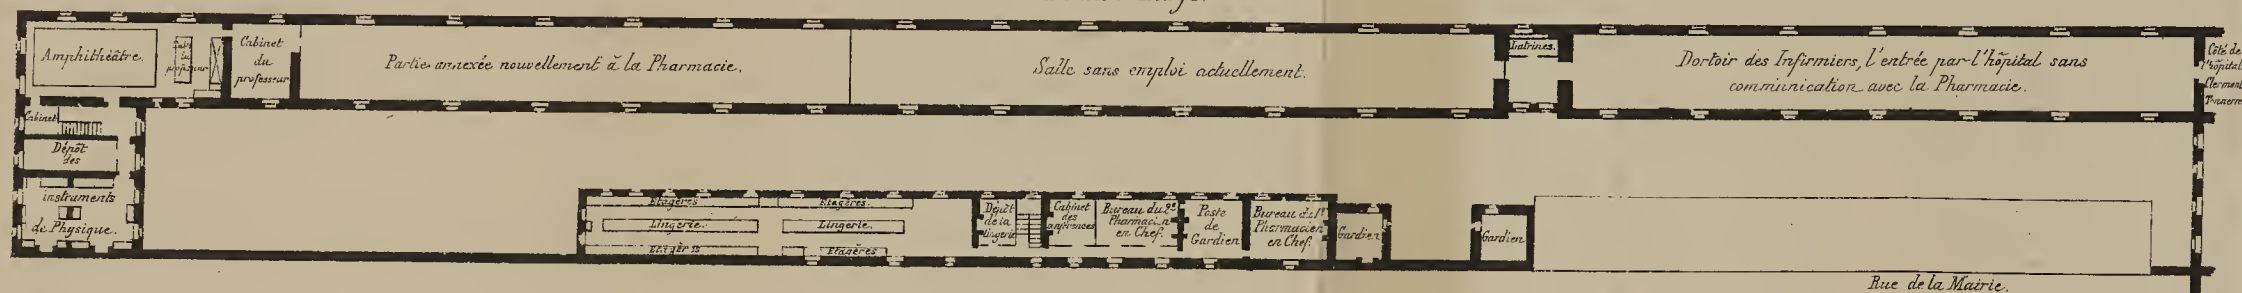 Amphithéâtre.
Table
du
professeur
Cabinet
du
professeur
Partie annexée nouvellement à la Pharmacie.
Salle sans emploi actuellement.
Latrines.
Dortoir des Infirmiers, l'entrée par l'hôpital sans
communication avec la Pharmacie.
Côté de
l'hôpital
Clermont
Tonnerre
Cabinet
Dépôt
des
instruments
de Physique.
Etagères
Etagères.
Lingerie.
Lingerie.
Etagères
Etagères
Dépôt
de la
lingerie
Cabinet
des
conférences
Bureau du 2e
Pharmacien
en Chef.
Poste
de
Gardien
Bureau du 1r
Pharmacien
en Chef.
Gardien
Gardien
Rue de la Mairie.